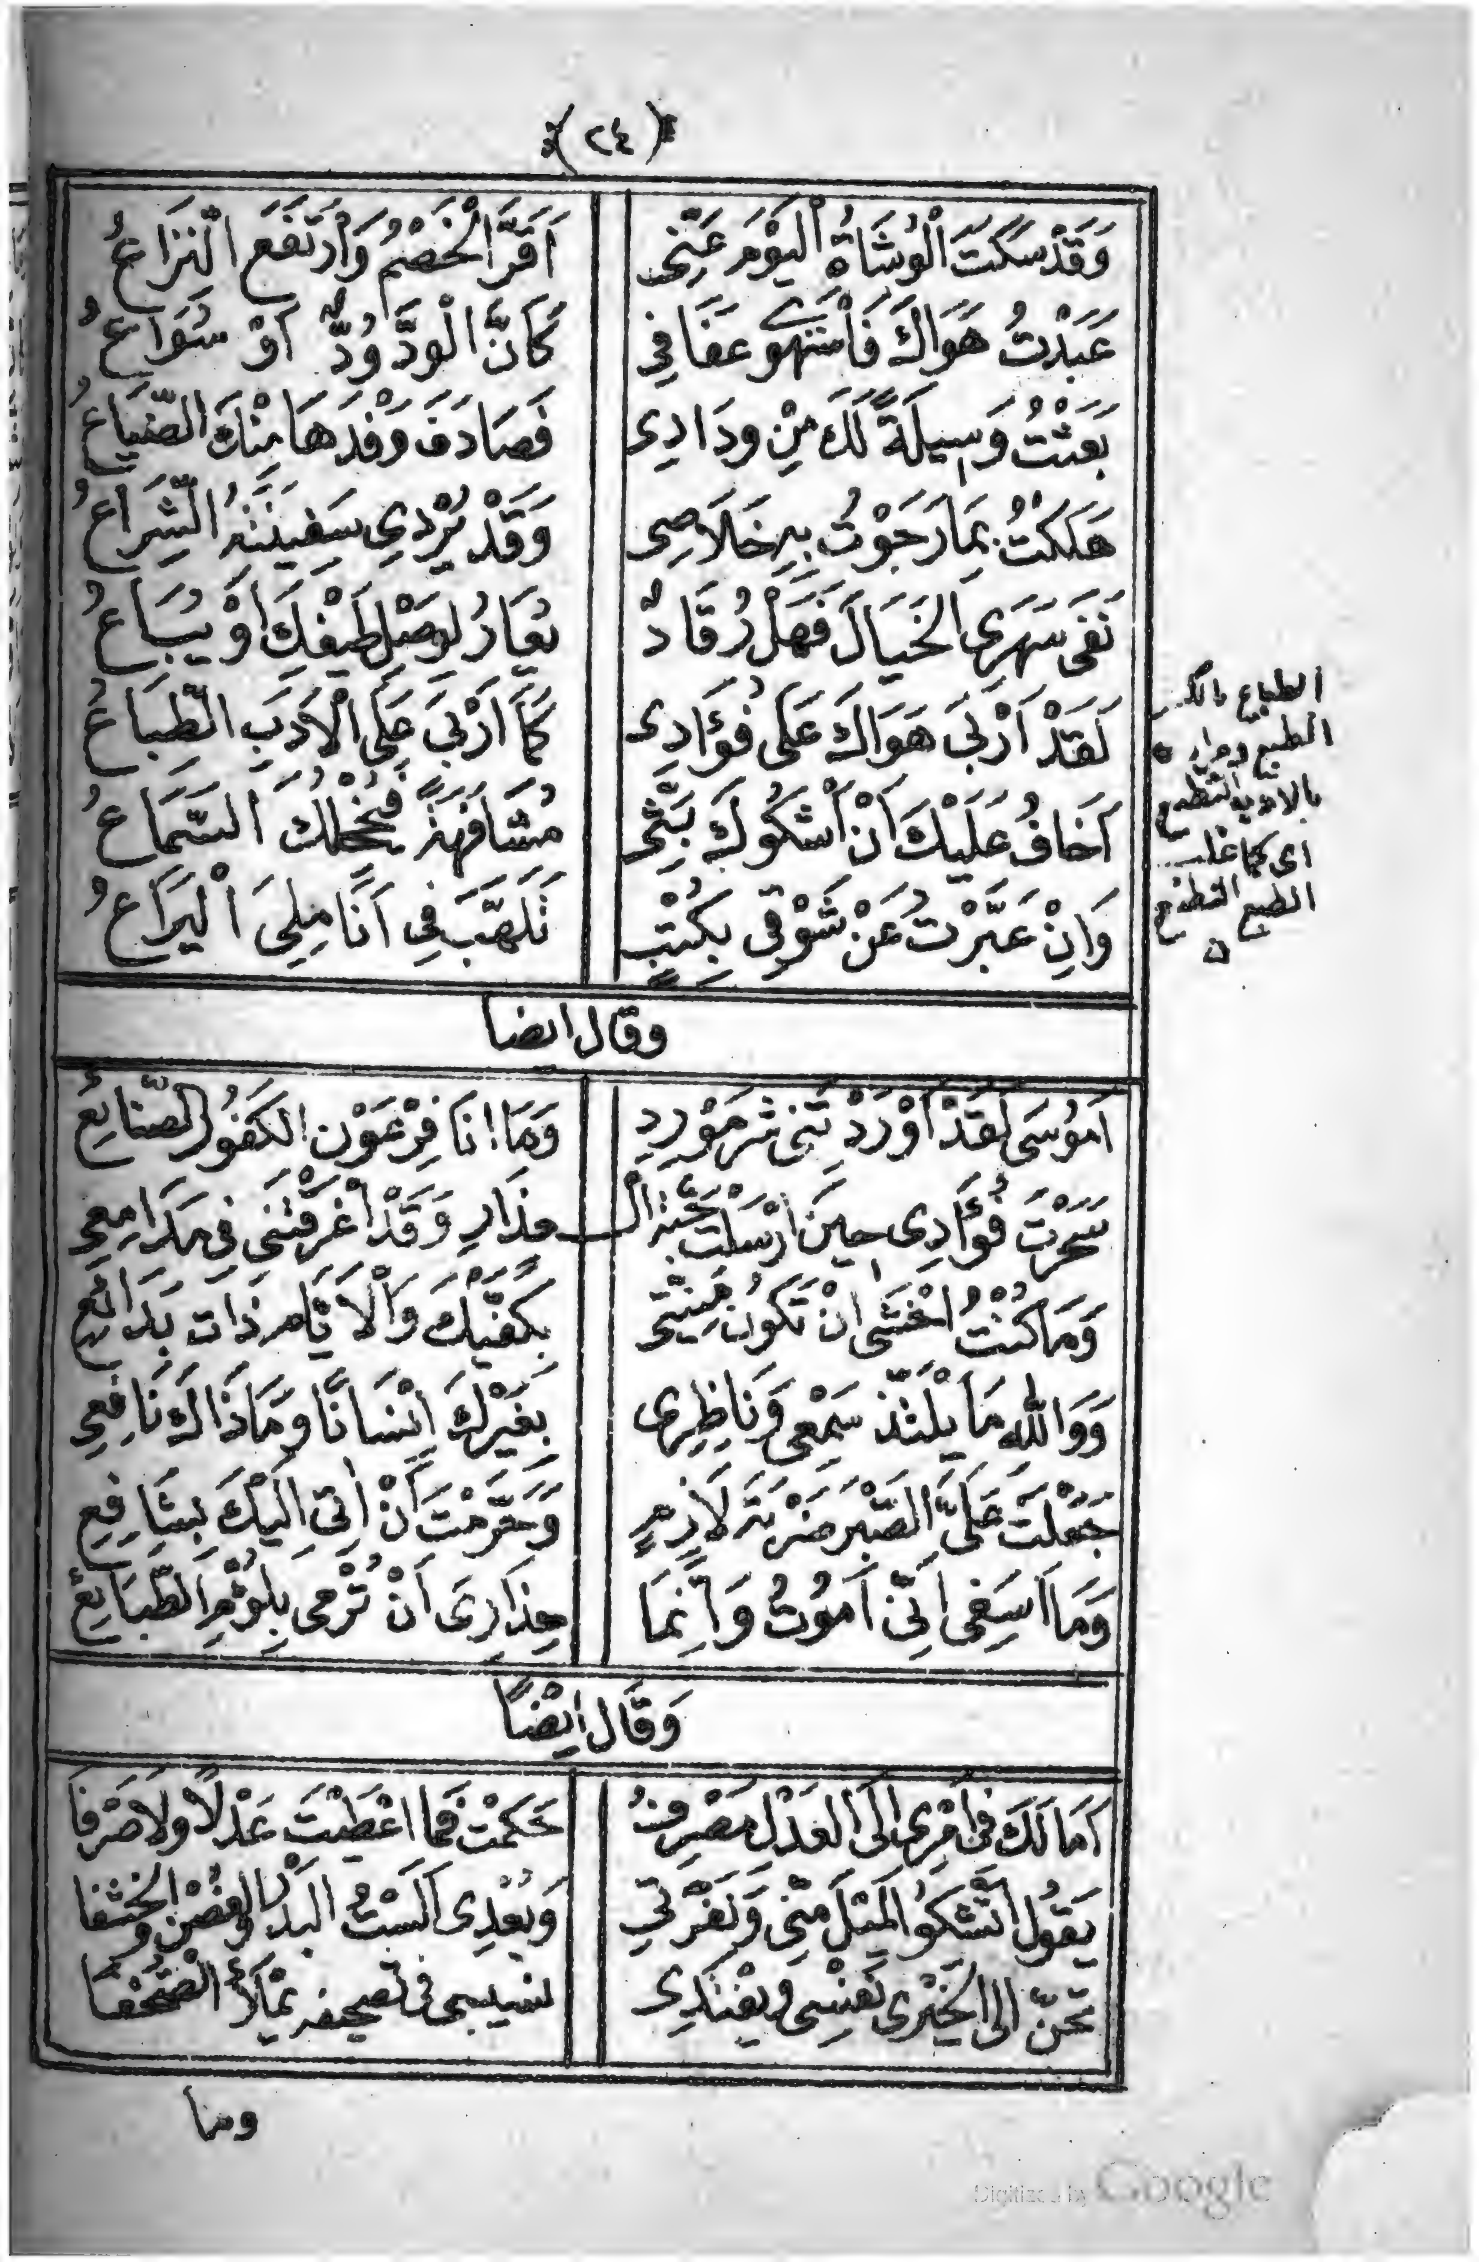 (٢٤)
وَقَدْ سَكَتَ الْوُشَاةُ الْيَوْمَ عَنِّى اَقَرَّ الْخَصْمُ وَارْتَفَعَ النِّزَاعُ
عَبَدْتُ هَوَاكَ فَاسْتَهْوَى عَفَافِي كَاَنَّ الْوَدَّ وُدٌّ اَوْ سُوَاعُ
بَعَثْتُ وَسِيلَةً لَكَ مِنْ وِدَادِى فَصَادَفَ وَفْدَهَا مِنْكَ الضَّيَاعُ
هَلَكْتُ بِمَا رَجَوْتُ بِهِ خَلَاصِى وَقَدْ يُرْدِى سَفِينَتَهُ الشِّرَاعُ
نَفَى سَهَرِى الْخَيَالَ فَهَلْ رُقَادٌ يُعَارُ لِوَصْلِ طَيْفِكَ اَوْ يُبَاعُ
لَقَدْ اَرْبَى هَوَاكَ عَلَى فُؤَادِى كَمَا اَرْبَى عَلَى الْاَدَبِ الطِّبَاعُ
اَخَافُ عَلَيْكَ اَنْ اَشْكُوكَ بَثِّى مُشَافَهَةً فَيُخْجِلُكَ السَّمَاعُ
وَاِنْ عَبَّرْتُ عَنْ شَوْقِى بِكُتْبٍ تَلَهَّبَ فِى اَنَامِلِىَ الْيَرَاعُ
الطباع بالكسر
الطبع ومراده
بالادب التطبع
اى كما غلب
الطبع التطبع
ن
وقال ايضا
اَمُوسَى لَقَدْ اَوْرَدْتَنِى شَرَّ مَوْرِدِ وَمَا انَا فِرْعَوْن الكَفُورُ الصَّنَايِعِ
سَحَرْتَ فُؤَادِى حِينَ اَرْسَلْتَ حَيَّةَ الْـ ـعِذَارِ وَقَدْ اَغْرَقْتَنِى فِى مَدَامِعِى
وَمَا كُنْتُ اَخْشَى اَنْ تَكُونَ مَنِيَّتِى بِكَفَّيْكَ وَالْاَيَّام ذَات بَدَائِعِ
وَوَاللهِ مَا يَلْتَذّ سَمْعِى وَنَاظِرِى بِغَيْرِكَ اِنْسَانًا وَمَا ذَاكَ نَافِعِى
جَعَلْتَ عَلَىَّ الصَّبْرَ ضَرْبَةَ لَازِمٍ وَحَرَّمْتَ اَنْ اٰتِى اِلَيْكَ بِشَافِعِ
وَمَا اَسَفِى اَنِّى اَمُوتُ وَاِنَّمَا حِذَارِىَ اَنْ تُرْمَى بِلُوْمِ الطَّبَايِعِ
وَقَالَ اَيْضًا
اَمَا لَكَ فِى اَمْرِى اِلَى الْعَدْلِ مَصْرِفُ حَكَمْتَ فَمَا اَعْطَيْتَ عَدْلًا وَلَا صَرْفَا
يَقُولُ اَتَشْكُو الْمَيْلَ مِنِّى وَنَفْرَتِى وَبُعْدِى اَلَسْتُ الْبَدْرَ وَالْغُصْنَ وَالْخِشْفَا
تَحِنّ الى الخيْرِى نَفْسِى وَيَغْتَدِى نسيبى فى تصحيفه يَمْلَأُ الصُّحْفَا
وما